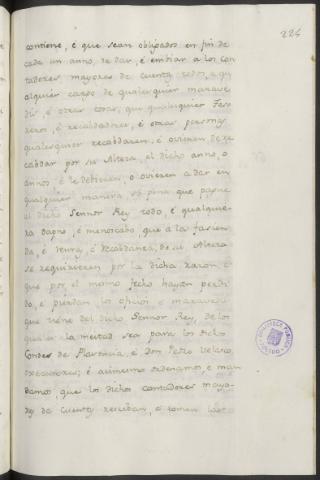 226
contiene, é que sean obligados en fin de
cada un anno, de dar, é embiar a los con
tadores mayores de cuenta todo, é qu
alquier cargo de qualesquier marave
dis, é otras cosas, que qualesquier Teso
reros, é recabdadores, é otras personas
qualesquier recabdaren, é ovieren de re
cabdar por su Alteza, el dicho anno, o
annos é le debieren, o ovieren a dar en
qualquier manera so pena que pague
el dicho Sennor Rey todo, é qualquie-
ra dapno, é menoscabo que a la facien
da, é renta, é recabdanza, de su Alteza
se requirieren por la dicha razon, é
que por el mismo fecho hayan perdi
do, é pierdan los oficios é maravedis
que tiene del dicho Sennor Rey, de los
quales la meitad sea para los dichos
Condes de Plasencia, é Don Pedro Velasco,
executores; é asimismo ordenamos, é man
damos, que los dichos contadores mayo-
res de cuenta reciban, é tomen
BIBLIOTECA PUBLICA
TOLEDO